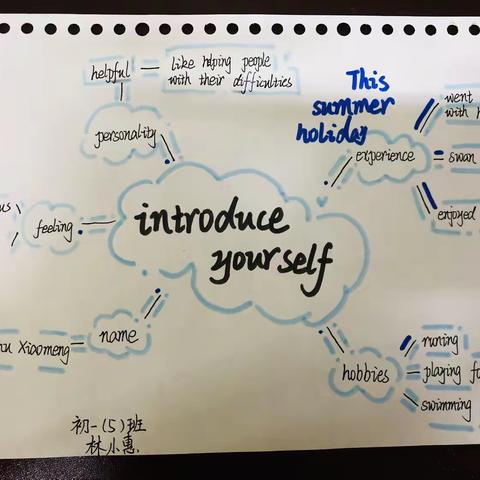 helpful
like helping people
with their difficulties
personality
This
summer
holiday
experience
went
with
swan
enjoyed
feeling
introduce
yourself
name
Xiaomeng
hobbies
runing
playing
swimming
初一(5)班
林小惠